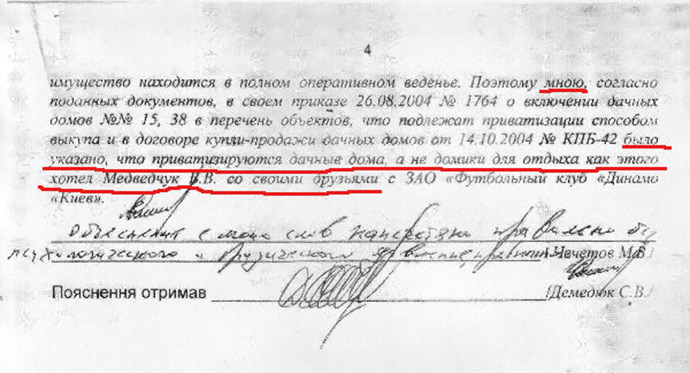 4
имущество находится в полном оперативном веденье. Поэтому мною, согласно
поданных документов, в своем приказе 26.08.2004 № 1764 о включении дачных
домов №№ 15, 38 в перечень объектов, что подлежат приватизации способом
выкупа и в договоре купли-продажи дачных домов от 14.10.2004 № КПБ-42 было
указано, что приватизируются дачные дома, а не домики для отдыха как этого
хотел Медведчук В.В. со своими друзьями с ЗАО «Футбольный клуб «Динамо
«Киев».
Объяснения с моих слов напечатаны правильно без
психологического и физического /Чечетов М.В./
Пояснення отримав /Демедюк С.В./